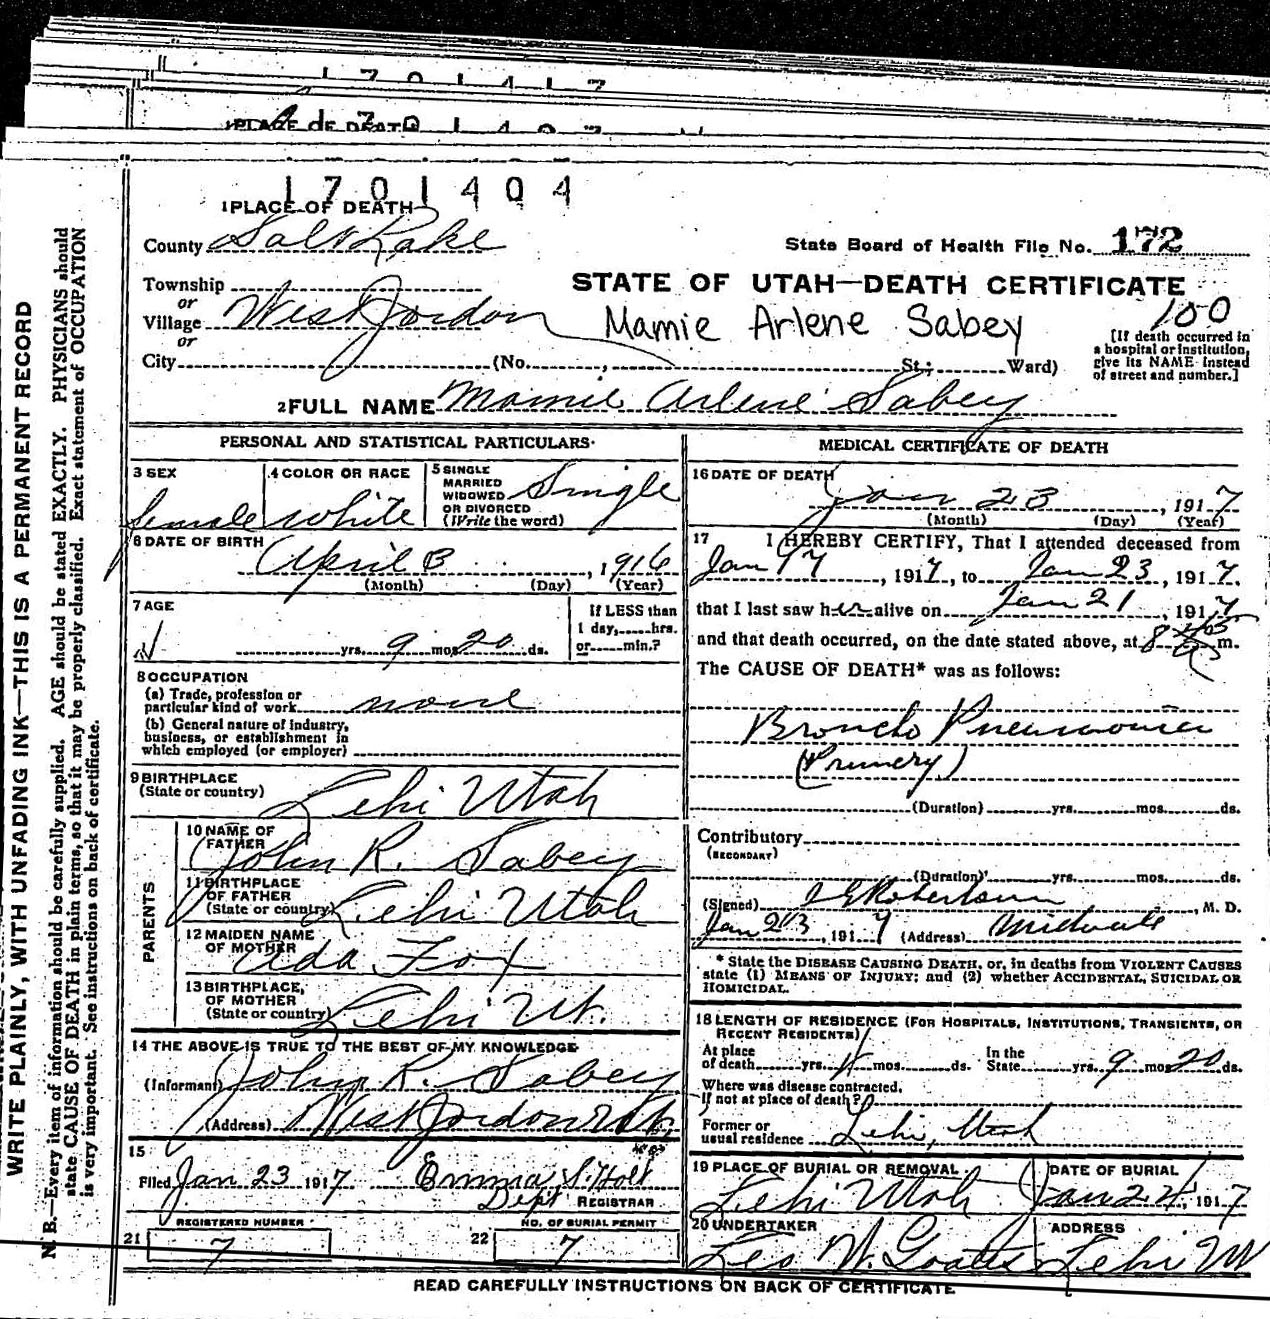 1701417
1701404
1 PLACE OF DEATH
County Salt Lake
State Board of Health File No. 172
Township
or
Village West Jordon
or
City (No. , St.; Ward)
STATE OF UTAH—DEATH CERTIFICATE
Mamie Arlene Sabey
100
[If death occurred in
a hospital or institution,
give its NAME instead
of street and number.]
2 FULL NAME Mamie Arlene Sabey
PERSONAL AND STATISTICAL PARTICULARS
3 SEX
female
4 COLOR OR RACE
white
5 SINGLE
MARRIED
WIDOWED
OR DIVORCED
(Write the word)
Single
6 DATE OF BIRTH
April 3, 1916
(Month) (Day) (Year)
7 AGE
yrs. 9 mos 20 ds.
If LESS than
1 day, hrs.
or min.?
8 OCCUPATION
(a) Trade, profession or
particular kind of work none
(b) General nature of industry,
business, or establishment in
which employed (or employer)
9 BIRTHPLACE
(State or country) Lehi Utah
PARENTS
10 NAME OF
FATHER John R. Sabey
11 BIRTHPLACE
OF FATHER
(State or country) Lehi Utah
12 MAIDEN NAME
OF MOTHER Ada Fox
13 BIRTHPLACE,
OF MOTHER
(State or country) Lehi Ut.
14 THE ABOVE IS TRUE TO THE BEST OF MY KNOWLEDGE
(Informant) John R. Sabey
(Address) West Jordon Utah
15
Filed Jan 23 1917. Emma S. Holt
Dept REGISTRAR
REGISTERED NUMBER
21 7
NO. OF BURIAL PERMIT
22 7
MEDICAL CERTIFICATE OF DEATH
16 DATE OF DEATH
Jan 23, 1917
(Month) (Day) (Year)
17 I HEREBY CERTIFY, That I attended deceased from
Jan 17, 1917, to Jan 23, 1917.
that I last saw her alive on Jan 21, 1917
and that death occurred, on the date stated above, at 8 m.
The CAUSE OF DEATH* was as follows:
Broncho Pneumonia
(Primery)
(Duration) yrs. mos. ds.
Contributory
(SECONDARY)
(Duration) yrs. mos. ds.
(Signed) Robertson, M. D.
Jan 23, 1917 (Address) Midvale
* State the DISEASE CAUSING DEATH, or, in deaths from VIOLENT CAUSES
state (1) MEANS OF INJURY; and (2) whether ACCIDENTAL, SUICIDAL OR
HOMICIDAL.
18 LENGTH OF RESIDENCE (FOR HOSPITALS, INSTITUTIONS, TRANSIENTS, OR
RECENT RESIDENTS)
At place
of death yrs. mos. ds.
In the
State yrs. 9 mos 20 ds.
Where was disease contracted,
if not at place of death?
Former or
usual residence Lehi, Utah
19 PLACE OF BURIAL OR REMOVAL
Lehi Utah
DATE OF BURIAL
Jan 24, 1917
20 UNDERTAKER
Leo W. Goates
ADDRESS
Lehi Ut
READ CAREFULLY INSTRUCTIONS ON BACK OF CERTIFICATE
WRITE PLAINLY, WITH UNFADING INK—THIS IS A PERMANENT RECORD
N. B.—Every item of information should be carefully supplied. AGE should be stated EXACTLY. PHYSICIANS should
state CAUSE OF DEATH in plain terms, so that it may be properly classified. Exact statement of OCCUPATION
is very important. See instructions on back of certificate.